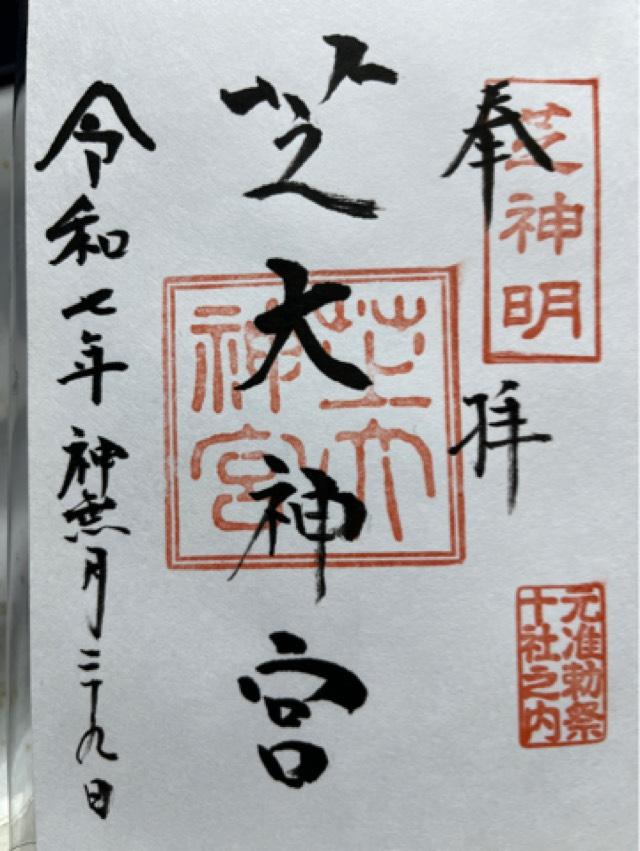 奉拝
芝神明
元准勅祭
十社之内
芝大神宮
芝大
神宮
令和七年神無月二十九日